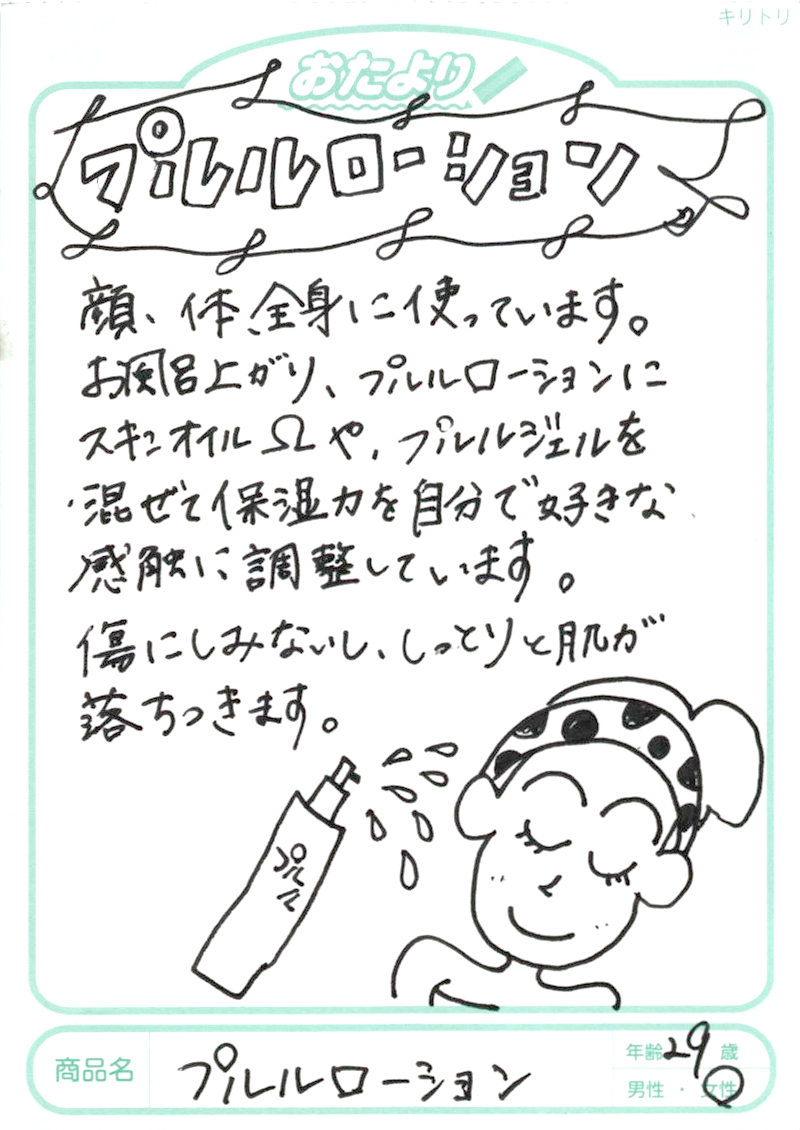 キリトリ
おたより
プルルローション
顔、体、全身に使っています。
お風呂上がり、プルルローションに
スキンオイルΩや、プルルジェルを
混ぜて保湿力を自分で好きな
感触に調整しています。
傷にしみないし、しっとりと肌が
落ちつきます。
プルル
商品名 プルルローション
年齢 29 歳
男性 ・ 女性